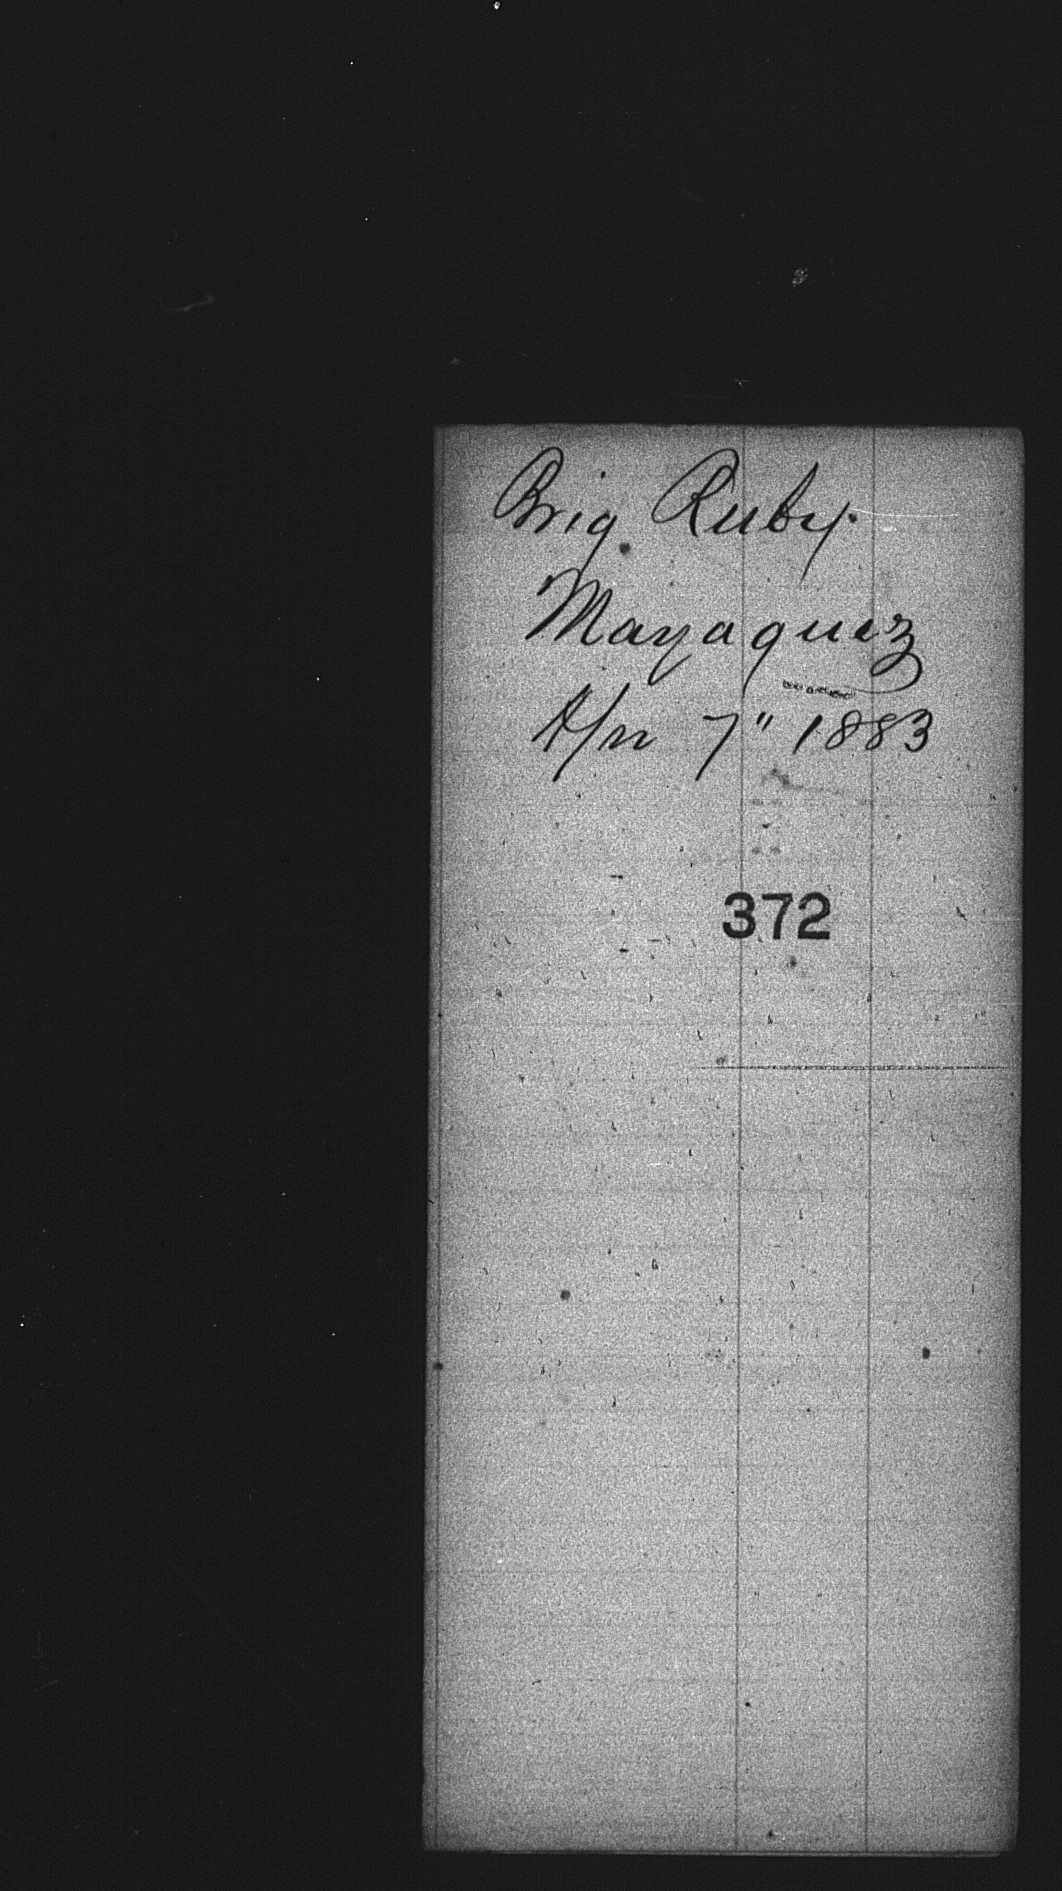 Brig Ruby.
Mayaguez
Apr 7" 1883
372